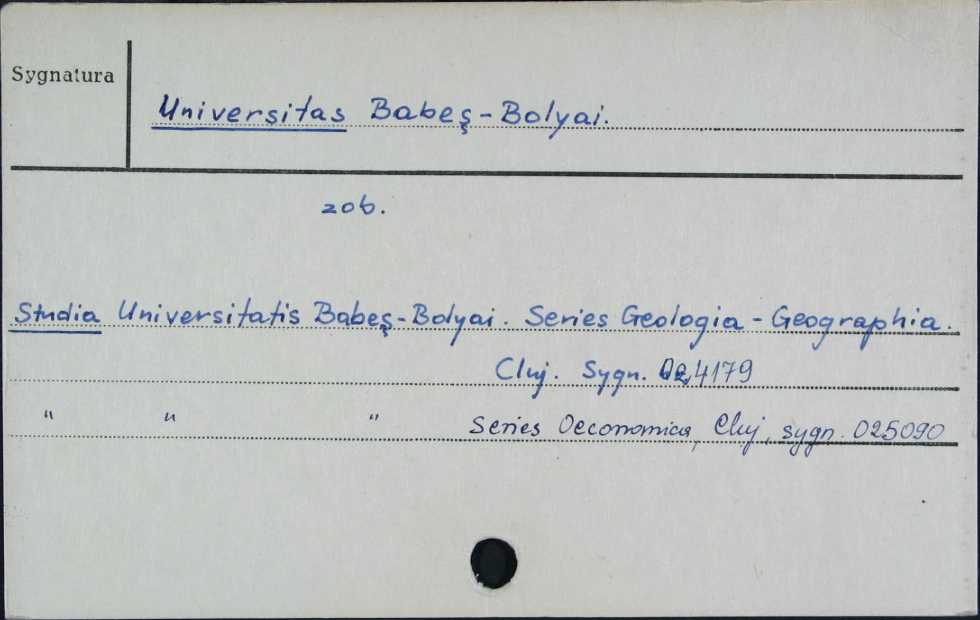 Sygnatura
Universitas Babeş-Bolyai.
zob.
Studia Universitatis Babeş-Bolyai. Series Geologia - Geographia.
Cluj. Sygn. 024179
" " " Series Oeconomica, Cluj, sygn. 025090